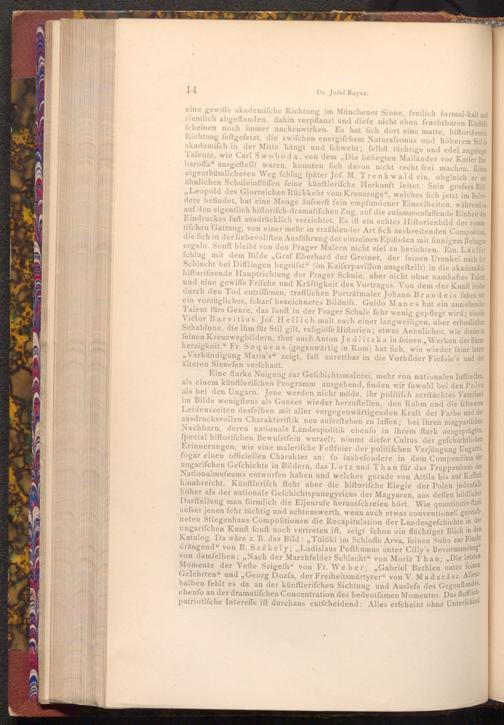 14
Dr. Josef Bayer.
eine gewiſſe akademiſche Richtung im Münchener Sinne, freilich formal-kalt und
ziemlich abgeſtanden, dahin verpflanzt und dieſe nicht eben fruchtbaren Einflüſſe
ſcheinen noch immer nachzuwirken. Es hat ſich dort eine matte, hiſtoriſirende
Richtung feſtgeſetzt, die zwiſchen energiſchem Naturalismus und höherem Stil ſo
akademiſch in der Mitte hängt und ſchwebt; ſelbſt tüchtige und edel angelegte
Talente, wie Carl Swoboda, von dem „Die beſiegten Mailänder vor Kaiſer Bar-
baroſſa“ ausgeſtellt waren, konnten ſich davon nicht recht frei machen. Einen
eigenthümlicheren Weg ſchlug ſpäter Joſ. M. Trenkwald ein, obgleich er aus
ähnlichen Schuleinflüſſen ſeine künſtleriſche Herkunft leitet. Sein großes Bild:
„Leopold des Glorreichen Rückkehr vom Kreuzzuge“, welches ſich jetzt im Belve-
dere befindet, hat eine Menge äußerſt fein empfundener Einzelheiten, während es
auf den eigentlich hiſtoriſch-dramatiſchen Zug, auf die zuſammenfaſſende Einheit des
Eindruckes faſt ausdrücklich verzichtet. Es iſt ein echtes Hiſtorienbild der roman-
tiſchen Gattung, von einer mehr in erzählender Art ſich ausbreitenden Compoſition,
die ſich in der liebevollſten Ausführung der einzelnen Epiſoden mit ſinnigem Behagen
ergeht. Sonſt bleibt von den Prager Malern nicht viel zu berichten. Em. Lauffer
ſchlug mit dem Bilde „Graf Eberhard der Greiner, der ſeinen Urenkel nach der
Schlacht bei Döffingen begrüßt“ (im Kaiſerpavillon ausgeſtellt) in die akademiſch
hiſtoriſirende Hauptrichtung der Prager Schule, aber nicht ohne namhaftes Talent
und eine gewiſſe Friſche und Kräftigkeit des Vortrages. Von dem der Kunſt leider
durch den Tod entriſſenen, trefflichen Porträtmaler Johann Brandeis ſahen wir
ein vorzügliches, ſcharf bezeichnetes Bildniß. Guido Manes hat ein anziehendes
Talent fürs Genre, das ſonſt in der Prager Schule ſehr wenig gepflegt wird; ebenſo
Victor Barvitius. Joſ. Hellich malt nach einer langweiligen, aber erbaulichen
Schablone, die ihm für Stil gilt, religiöſe Hiſtorien; etwas Aehnliches, wie dieſer in
ſeinen Kreuzwegbildern, thut auch Anton Jedlitzka in ſeinen „Werken der Barm-
herzigkeit.“ Fr. Sequens (gegenwärtig in Rom) hat ſich, wie wieder ſeine
„Verkündigung Maria's“ zeigt, faſt unrettbar in die Vorbilder Fieſole's und der
älteren Sieneſen verſchaut.
Eine ſtarke Neigung zur Geſchichtsmalerei, mehr von nationalen Inſtincten,
als einem künſtleriſchen Programm ausgehend, finden wir ſowohl bei den Polen
als bei den Ungarn. Jene werden nicht müde, ihr politiſch zerſtücktes Vaterland
im Bilde wenigſtens als Ganzes wieder herzuſtellen, den Ruhm und die ſchweren
Leidenszeiten desſelben mit aller vergegenwärtigenden Kraft der Farbe und der
ausdrucksvollen Charakteriſtik neu auferſtehen zu laſſen; bei ihren magyariſchen
Nachbarn, deren nationale Landespolitik ebenſo in ihrem ſtark ausgeprägten,
ſpecial hiſtoriſchen Bewußtſein wurzelt, nimmt dieſer Cultus der geſchichtlichen
Erinnerungen, wie eine maleriſche Feſtfeier der politiſchen Verjüngung Ungarns,
ſogar einen officiellen Charakter an: ſo insbeſondere in dem Compendium der
ungariſchen Geſchichte in Bildern, das Lotz und Than für das Treppenhaus des
Nationalmuſeums entworfen haben und welches gerade von Attila bis auf
hinabreicht. Künſtleriſch ſteht aber die hiſtoriſche Elegie der Polen jedenfalls
höher als der nationale Geſchichtspanegyricus der Magyaren, aus deſſen bildlicher
Darſtellung man förmlich die Eljenrufe herausſchreien hört. Wie quantitativ ſtark
außer jenen ſehr tüchtig und achtenswerth, wenn auch etwas conventionell gezeich-
neten Stiegenhaus-Compoſitionen die Recapitulation der Landesgeſchichte in der
ungariſchen Kunſt ſonſt noch vertreten iſt, zeigt ſchon ein flüchtiger Blick in den
Katalog. Da wäre z. B. das Bild: „Tölöki im Schloſſe Arva, ſeinen Sohn zur Flucht
drängend“ von B. Székely; „Ladislaus Poſthumus unter Cilly's Bevormundung“
von demſelben; „Nach der Marchfelder Schlacht“ von Moriz Than; „Die letzten
Momente der Veſte Szigeth“ von Fr. Weber; „Gabriel Bethlen unter ſeinen
Gelehrten“ und „Georg Dozſa, der Freiheitsmärtyrer“ von V. Madarász. Allent-
halben fehlt es da an der künſtleriſchen Sichtung und Ausleſe des Gegenſtandes,
ebenſo an der dramatiſchen Concentration des bedeutſamen Momentes. Das ſtofflich-
patriotiſche Intereſſe iſt durchaus entſcheidend: Alles erſcheint ohne Unterſchied